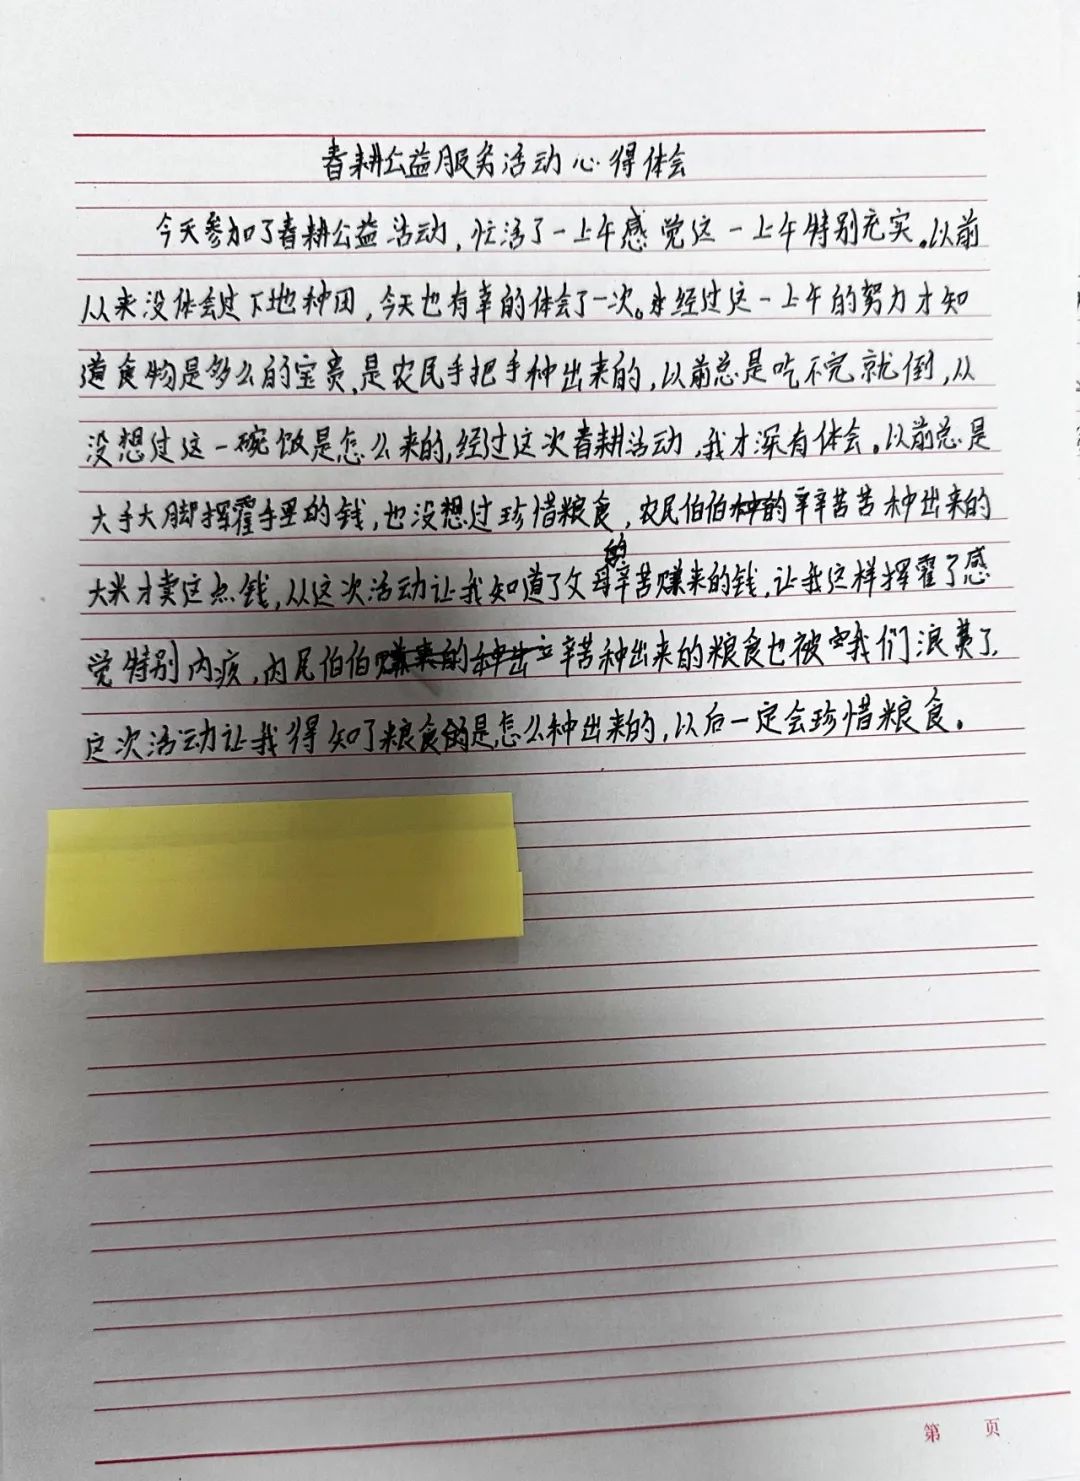 春耕公益服务活动心得体会
今天参加了春耕公益活动，忙活了一上午感觉这一上午特别充实。以前
从来没体会过下地种田，今天也有幸的体会了一次。经过这一上午的努力才知
道食物是多么的宝贵，是农民手把手种出来的，以前总是吃不完就倒，从
没想过这一碗饭是怎么来的，经过这次春耕活动，我才深有体会。以前总是
大手大脚挥霍手里的钱，也没想过珍惜粮食，农民伯伯种的辛辛苦苦种出来的
大米才卖这点钱，从这次活动让我知道了父母的辛苦赚来的钱，让我这样挥霍了感
觉特别内疚，农民伯伯辛苦种出来的粮食也被我们浪费了，
这次活动让我得知了粮食的是怎么种出来的，以后一定会珍惜粮食。
第 页